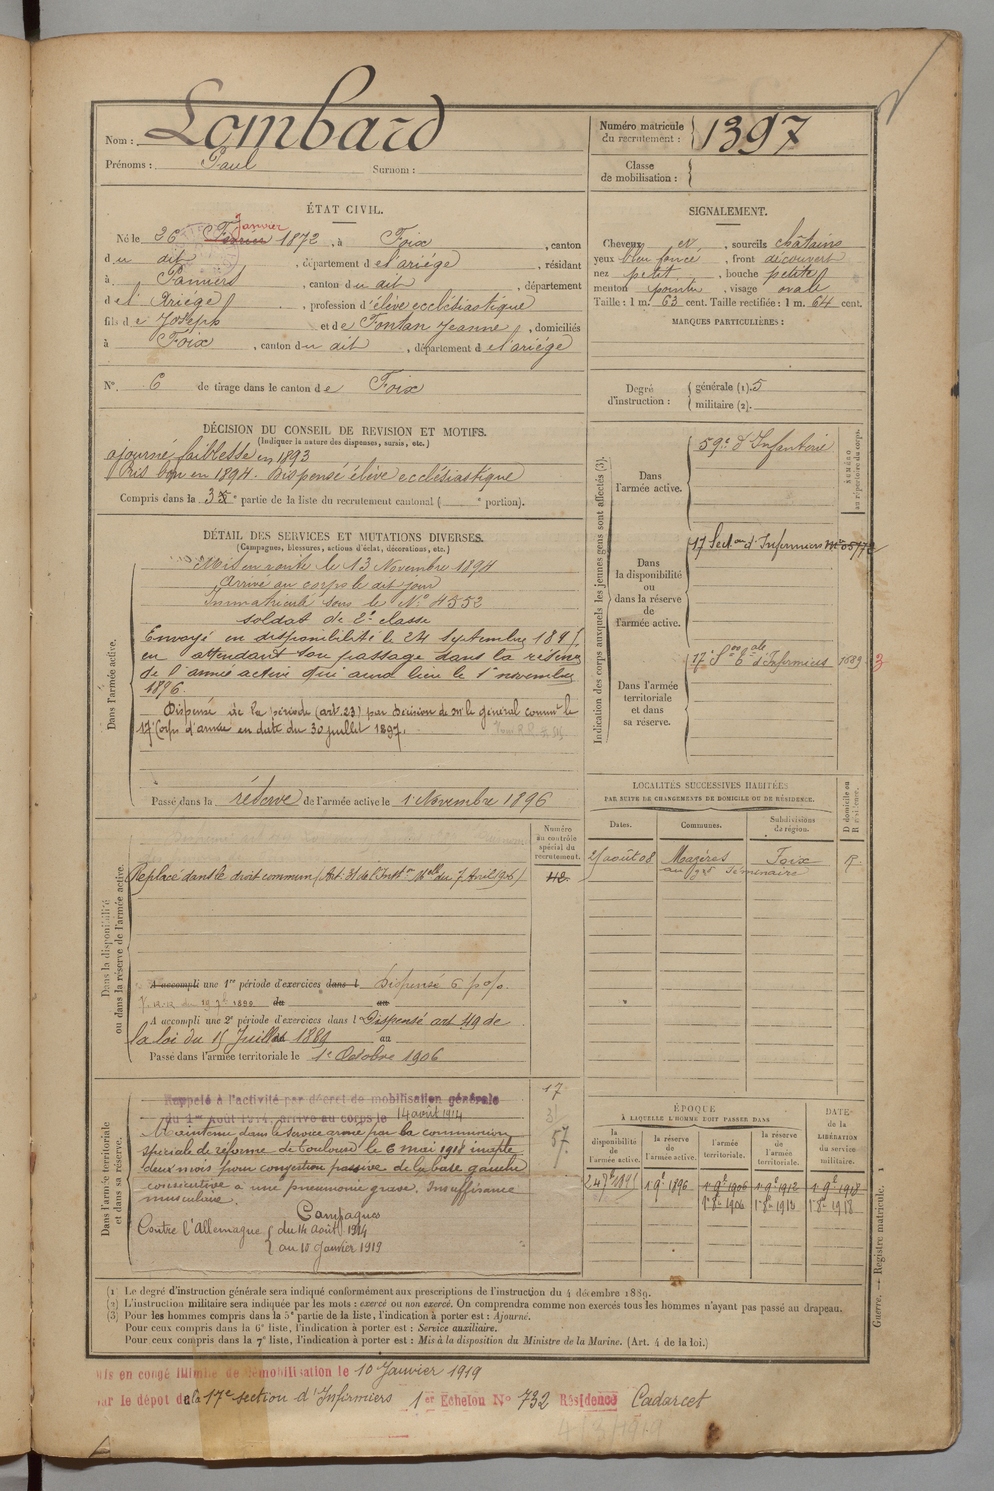 Nom : Lombard
Prénoms : Paul Surnom :
Numéro matricule du recrutement : 1397
Classe de mobilisation :
ÉTAT CIVIL.
Janvier
Né le 26 Février 1872, à Foix, canton
du dit, département de l'ariège, résidant
à Pamiers, canton du dit, département
de l'Ariège, profession d'élève ecclésiastique
fils de Joseph et de Fontan Jeanne, domiciliés
à Foix, canton du dit, département de l'ariège
N° 6 de tirage dans le canton de Foix
SIGNALEMENT.
Cheveux et, sourcils châtains
yeux bleu foncé, front découvert
nez petit, bouche petite
menton pointu, visage ovale
Taille : 1 m. 63 cent. Taille rectifiée : 1 m. 64 cent.
MARQUES PARTICULIÈRES :
Degré d'instruction : générale (1). 5
militaire (2).
DÉCISION DU CONSEIL DE REVISION ET MOTIFS.
(Indiquer la nature des dispenses, sursis, etc.)
ajourné faiblesse en 1893
Pris bon en 1894. Dispensé élève ecclésiastique
Compris dans la 3e partie de la liste du recrutement cantonal ( e portion).
DÉTAIL DES SERVICES ET MUTATIONS DIVERSES.
(Campagnes, blessures, actions d'éclat, décorations, etc.)
Dans l'armée active.
Mis en route le 13 Novembre 1894
Arrivé au corps le dit jour
Immatriculé sous le N° 4552
soldat de 2e classe
Envoyé en disponibilité le 24 Septembre 1895
en attendant son passage dans la réserve
de l'armée active qui aura lieu le 1er novembre
1896.
Dispensé de la période (art. 23) par décision de Mr le général commt le
17e Corps d'armée en date du 30 juillet 1897.
Passé dans la réserve de l'armée active le 1er Novembre 1896
Indication des corps auxquels les jeunes gens sont affectés (3).
NUMÉRO au répertoire du corps.
Dans l'armée active.
59e d'Infanterie
Dans la disponibilité ou dans la réserve de l'armée active.
17 Section d'Infirmiers
Dans l'armée territoriale et dans sa réserve.
17e Son tale d'Infirmiers 1639
3
LOCALITÉS SUCCESSIVES HABITÉES
PAR SUITE DE CHANGEMENTS DE DOMICILE OU DE RÉSIDENCE.
D domicile ou R résidence.
Dates. Communes. Subdivisions de région.
25 août 08 Mazères Foix R.
au gd Séminaire
Dans la disponibilité ou dans la réserve de l'armée active.
Numéro au contrôle spécial du recrutement.
Replacé dans le droit commun (Art. 31 de l'Inston Mlle du 7 Avril 1906)
A accompli une 1re période d'exercices dans l Dispensé
du au
A accompli une 2e période d'exercices dans l Dispensé art 49 de
la loi du 15 Juillet 1889 au
Passé dans l'armée territoriale le 1er Octobre 1906
Dans l'armée territoriale et dans sa réserve.
17
57.
Rappelé à l'activité par décret de mobilisation générale
du 1er Août 1914, arrivé au corps le 14 août 1914
Maintenu dans le service armé par la commission
spéciale de réforme de Toulouse le 6 mai 1918 inapte
deux mois pour congestion passive de la base gauche
consécutive à une pneumonie grave. Insuffisance
musculaire.
Campagnes
Contre l'Allemagne du 14 août 1914
au 10 Janvier 1919
ÉPOQUE
À LAQUELLE L'HOMME DOIT PASSER DANS
DATE DE LA LIBÉRATION du service militaire.
la disponibilité de l'armée active. la réserve de l'armée active. l'armée territoriale. la réserve de l'armée territoriale.
24 7bre 1895 1er 9bre 1896 1er 9bre 1906 1er 9bre 1912 1er 9bre 1918
1er 8bre 1906 1er 8bre 1918
(1) Le degré d'instruction générale sera indiqué conformément aux prescriptions de l'instruction du 4 décembre 1889.
(2) L'instruction militaire sera indiquée par les mots : exercé ou non exercé. On comprendra comme non exercés tous les hommes n'ayant pas passé au drapeau.
(3) Pour les hommes compris dans la 5e partie de la liste, l'indication à porter est : Ajourné.
Pour ceux compris dans la 6e liste, l'indication à porter est : Service auxiliaire.
Pour ceux compris dans la 7e liste, l'indication à porter est : Mis à la disposition du Ministre de la Marine. (Art. 4 de la loi.)
Guerre. — Registre matricule. 1
Mis en congé illimité de démobilisation le 10 Janvier 1919
par le dépôt de la 17e section d'Infirmiers 1er Echelon N° 732 Résidence Cadarcet